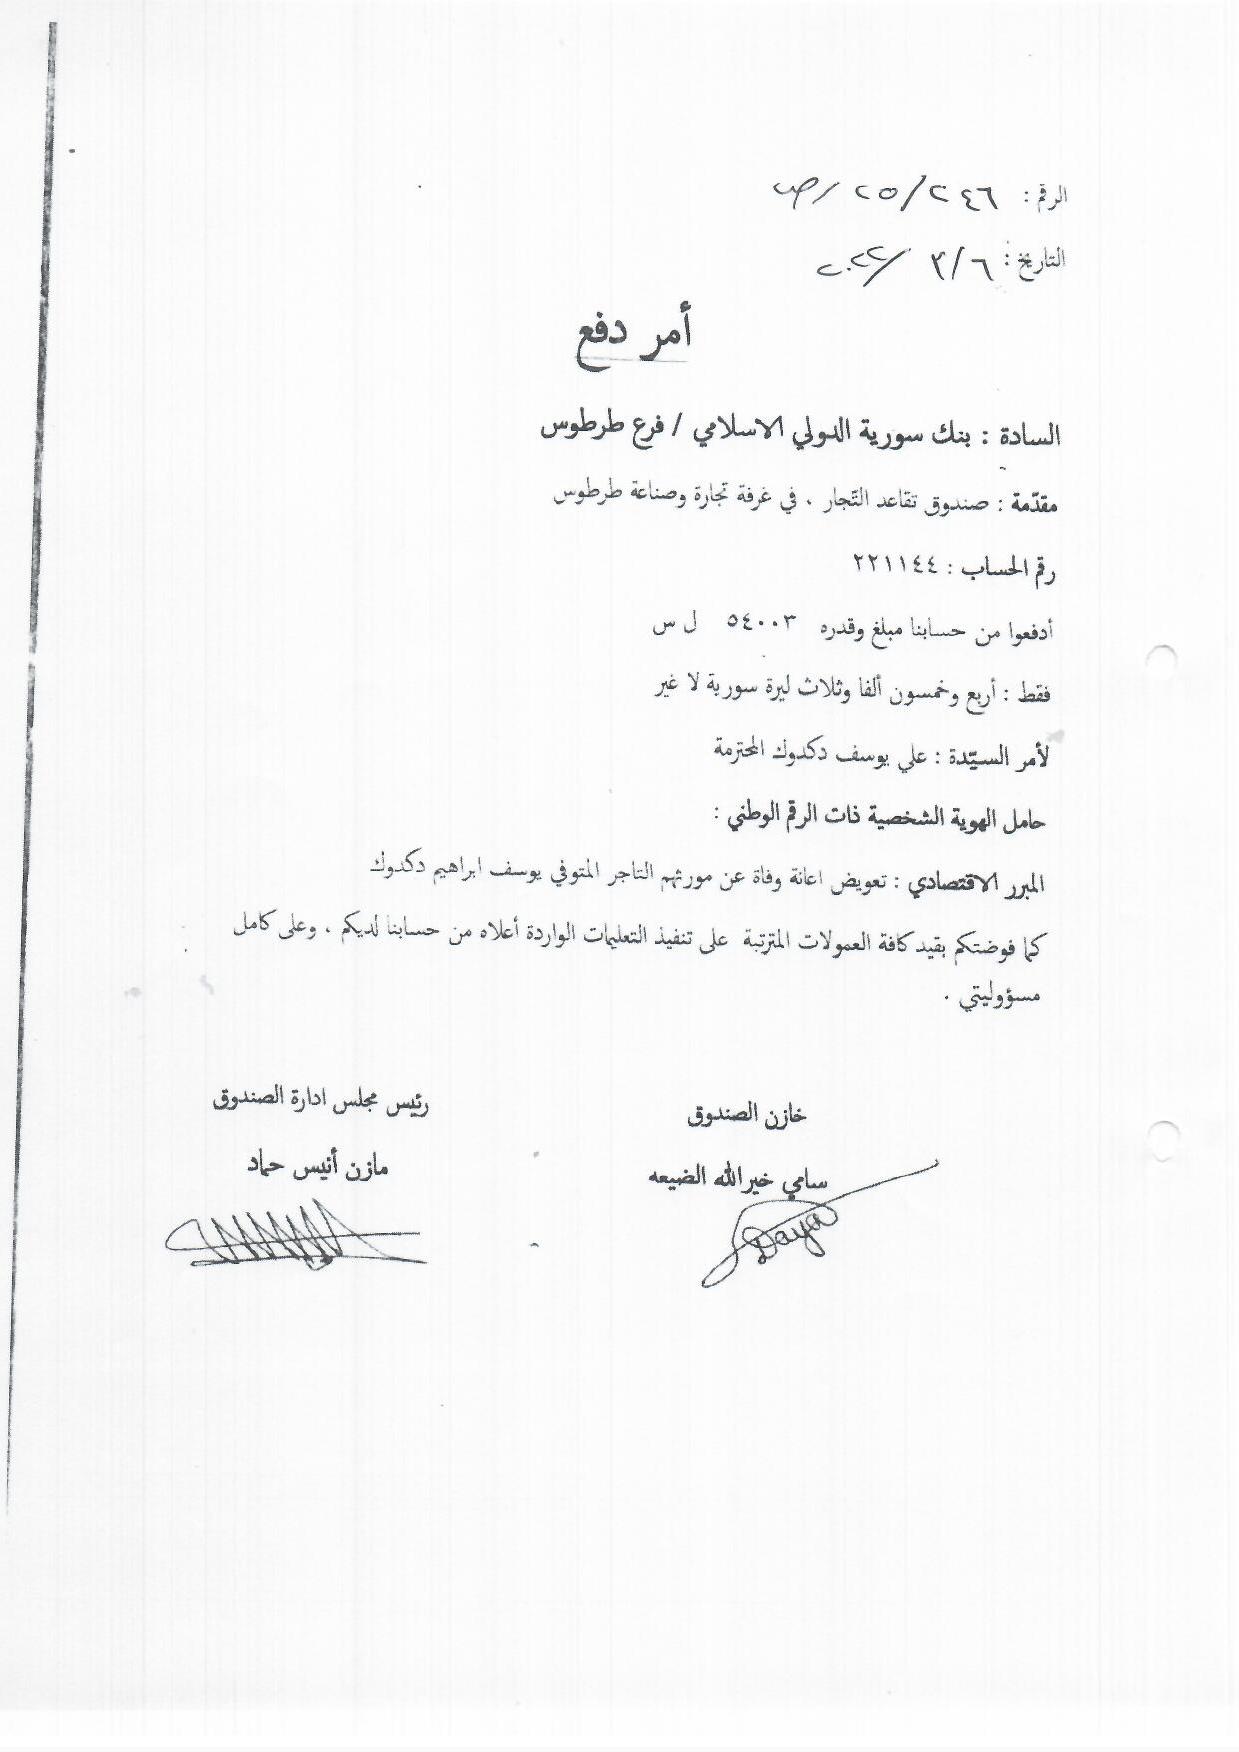 الرقم : ٢٤٦/٢٥/ص
التاريخ : ٣/٦/٢٠٢٢
أمر دفع
السادة : بنك سورية الدولي الاسلامي / فرع طرطوس
مقدّمة : صندوق تقاعد التّجار ، في غرفة تجارة وصناعة طرطوس
رقم الحساب : ٢٢١١٤٤
أدفعوا من حسابنا مبلغ وقدره ٥٤٠٠٣ ل س
فقط : أربع وخمسون ألفا وثلاث ليرة سورية لا غير
لأمر السيّدة : علي يوسف دكدوك المحترمة
حامل الهوية الشخصية ذات الرقم الوطني :
المبرر الاقتصادي : تعويض اعانة وفاة عن مورثهم التاجر المتوفي يوسف ابراهيم دكدوك
كما فوضتكم بقيد كافة العمولات المترتبة على تنفيذ التعليمات الواردة أعلاه من حسابنا لديكم ، وعلى كامل
مسؤوليتي .
خازن الصندوق
رئيس مجلس ادارة الصندوق
سامي خيرالله الضيعه
مازن أنيس حماد
Daya